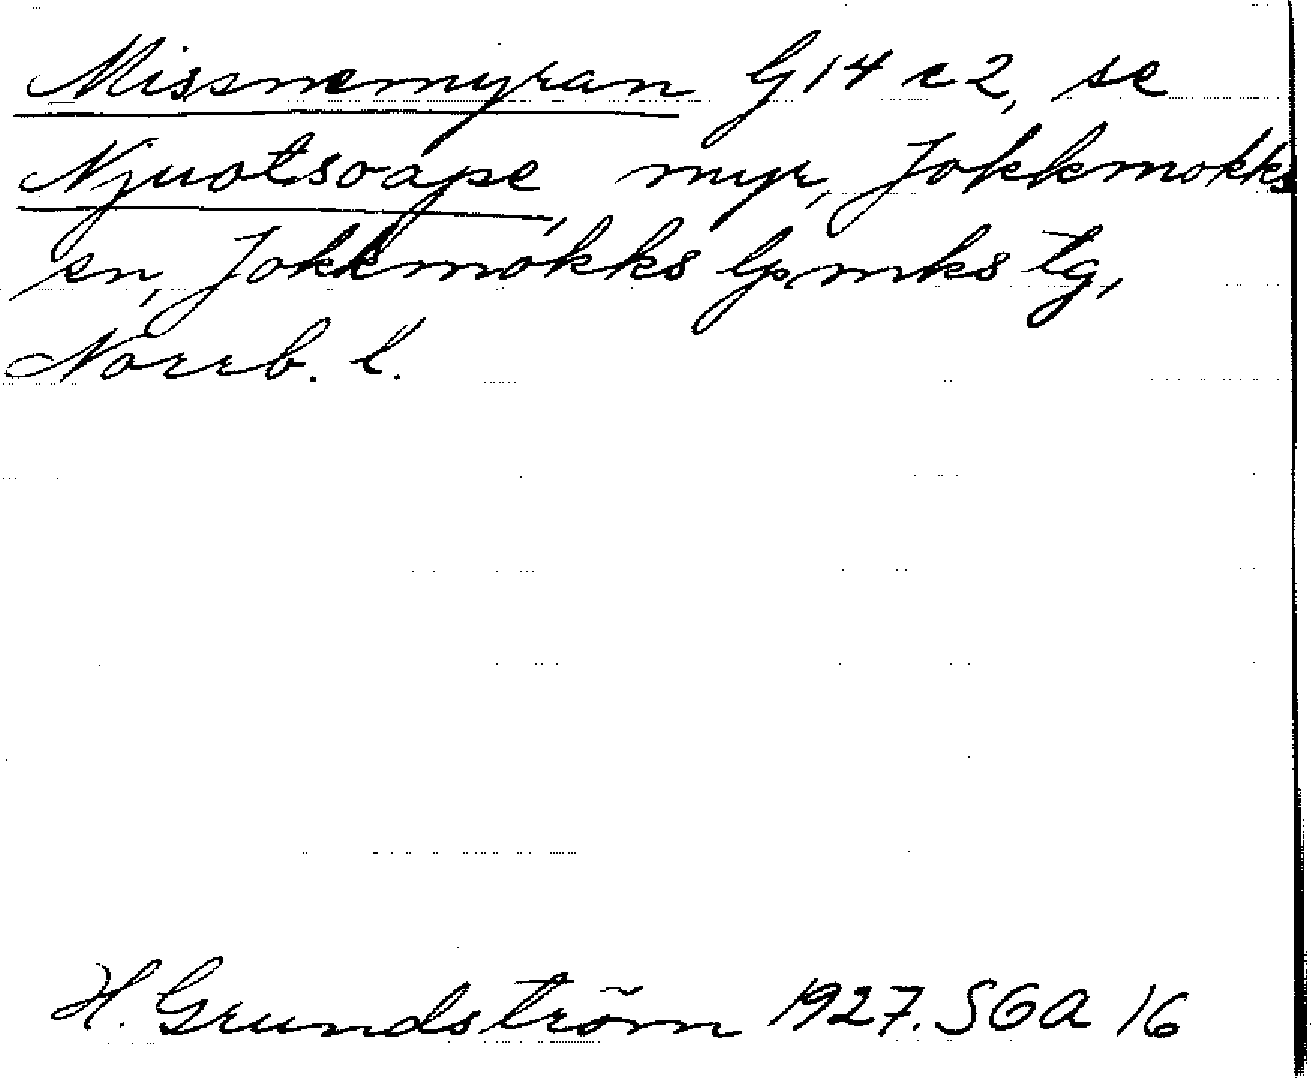 Missnemyran G14 c2, se
Njuotsoape, myr, Jokkmokks
sn, Jokkmokks lpmks tg,
Norrb. l.
H. Grundström 1927. SGA 16